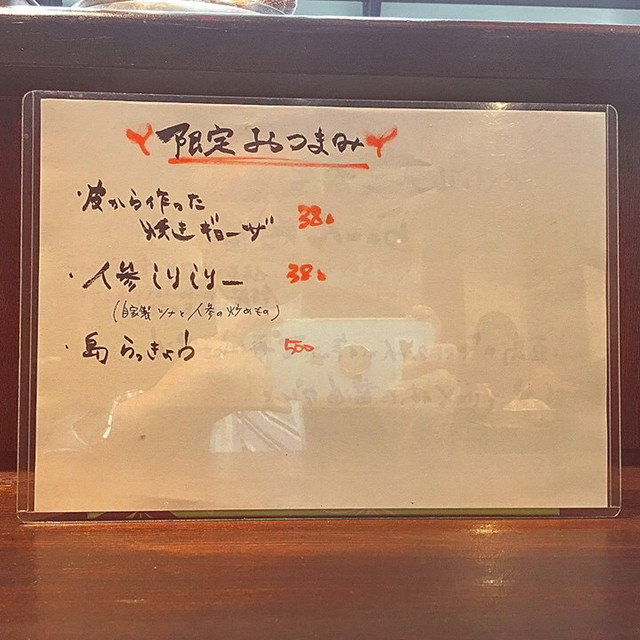 限定おつまみ
・皮から作った
焼きギョーザ 380
・人参しりしりー 380
(自家製ツナと人参の炒めもの)
・島らっきょう 500